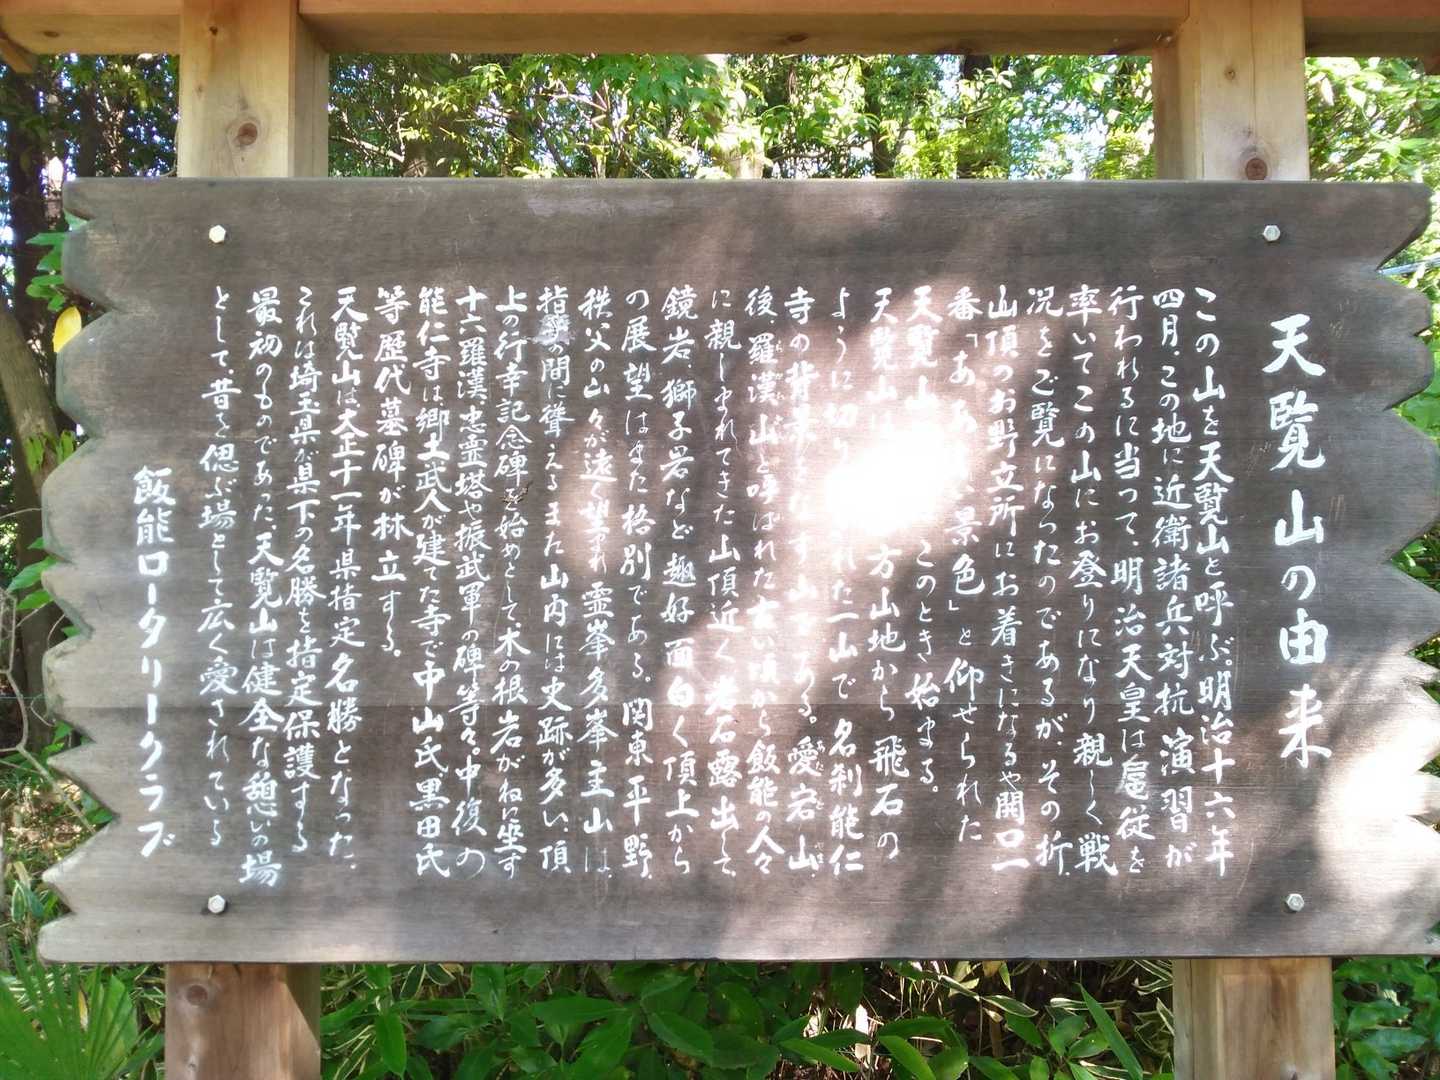 天覧山の由来
この山を天覧山と呼ぶ。明治十六年
四月、この地に近衛諸兵対抗演習が
行われるに当つて、明治天皇は扈従を
率いてこの山にお登りになり親しく戦
況をご覧になつたのであるが、その折、
山頂のお野立所にお着きになるや開口一
番「ああ い景色」と仰せられた
天覧山 このとき始まる。
天覧山は 方山地から飛石の
ように切り れた一山で名刹能仁
寺の背景をなす山である。愛宕山、
あたごやま
後、羅漢山と呼ばれた古い頃から飯能の人々
らかんざん
に親しまれてきた山頂近く岩石露出して、
鏡岩、獅子岩など趣好面白く頂上から
の展望はまた格別である。関東平野、
秩父の山々が遠く望まれ霊峯多峯主山は、
指呼の間に聳えるまた山内には史跡が多い、頂
上の行幸記念碑を始めとして、木の根岩がねに坐す
十六羅漢、忠霊塔や振武軍の碑等々。中復の
能仁寺は、郷土武人が建てた寺で中山氏、黒田氏
等歴代墓碑が林立する。
天覧山は大正十一年県指定名勝となった、
これは埼玉県が県下の名勝を指定保護する
最初のものであった、天覧山は健全な憩いの場
として、昔を偲ぶ場として広く愛されている
飯能ロータリークラブ